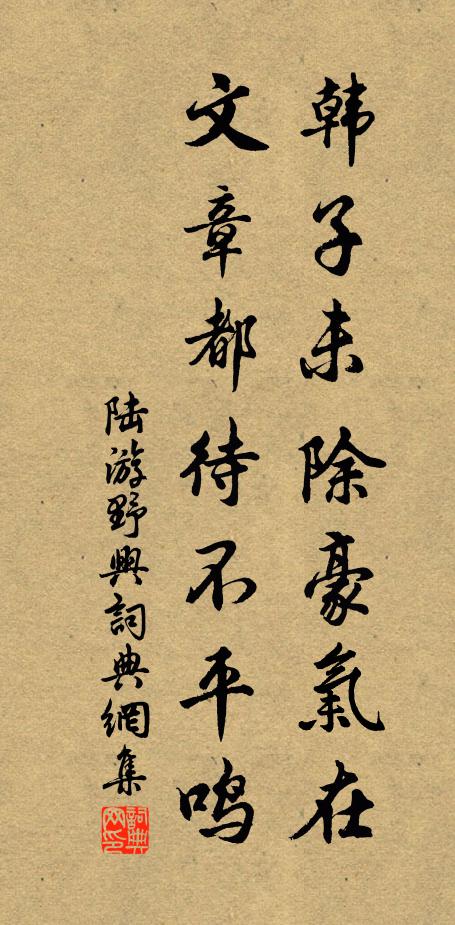 韩子未除豪氣在
文章都待不平鸣
陆游野興詞典網集
詞典网印